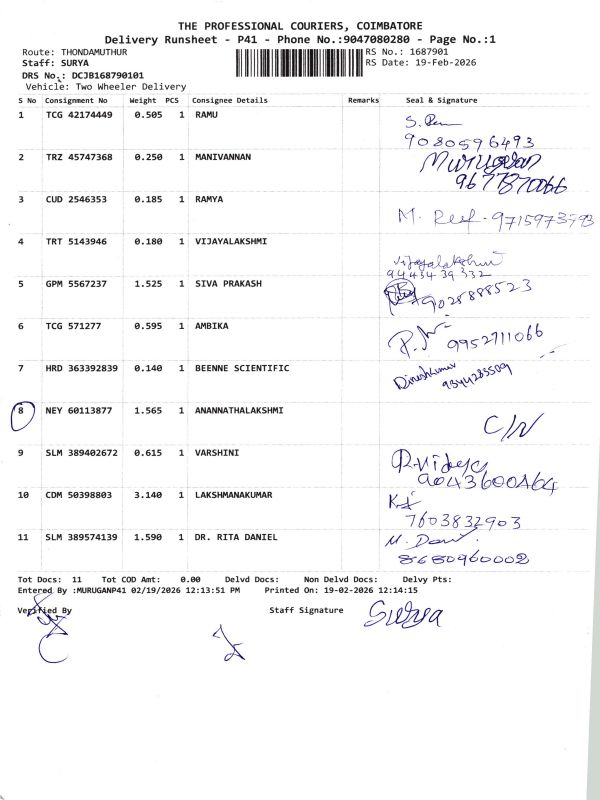 THE PROFESSIONAL COURIERS, COIMBATORE
Delivery Runsheet - P41 - Phone No.:9047080280 - Page No.:1
Route: THONDAMUTHUR
RS No.: 1687901
Staff: SURYA
RS Date: 19-Feb-2026
DRS No.: DCJB168790101
Vehicle: Two Wheeler Delivery
S No Consignment No Weight PCS Consignee Details Remarks Seal & Signature
1 TCG 42174449 0.505 1 RAMU
9080596493
2 TRZ 45747368 0.250 1 MANIVANNAN Murugesan
9677870066
3 CUD 2546353 0.185 1 RAMYA
M. 9715973793
4 TRT 5143946 0.180 1 VIJAYALAKSHMI
Vijayalakshmi
9443439332
5 GPM 5567237 1.525 1 SIVA PRAKASH
9025888523
6 TCG 571277 0.595 1 AMBIKA
9952711066
7 HRD 363392839 0.140 1 BEENNE SCIENTIFIC
Dineshkumar
8 NEY 60113877 1.565 1 ANANNATHALAKSHMI
C/N
9 SLM 389402672 0.615 1 VARSHINI
R.vidya
9043600464
10 CDM 50398803 3.140 1 LAKSHMANAKUMAR
7603832903
11 SLM 389574139 1.590 1 DR. RITA DANIEL
8680960002
Tot Docs: 11 Tot COD Amt: 0.00 Delvd Docs: Non Delvd Docs: Delvy Pts:
Entered By :MURUGANP41 02/19/2026 12:13:51 PM Printed On: 19-02-2026 12:14:15
Verified By Staff Signature Surya